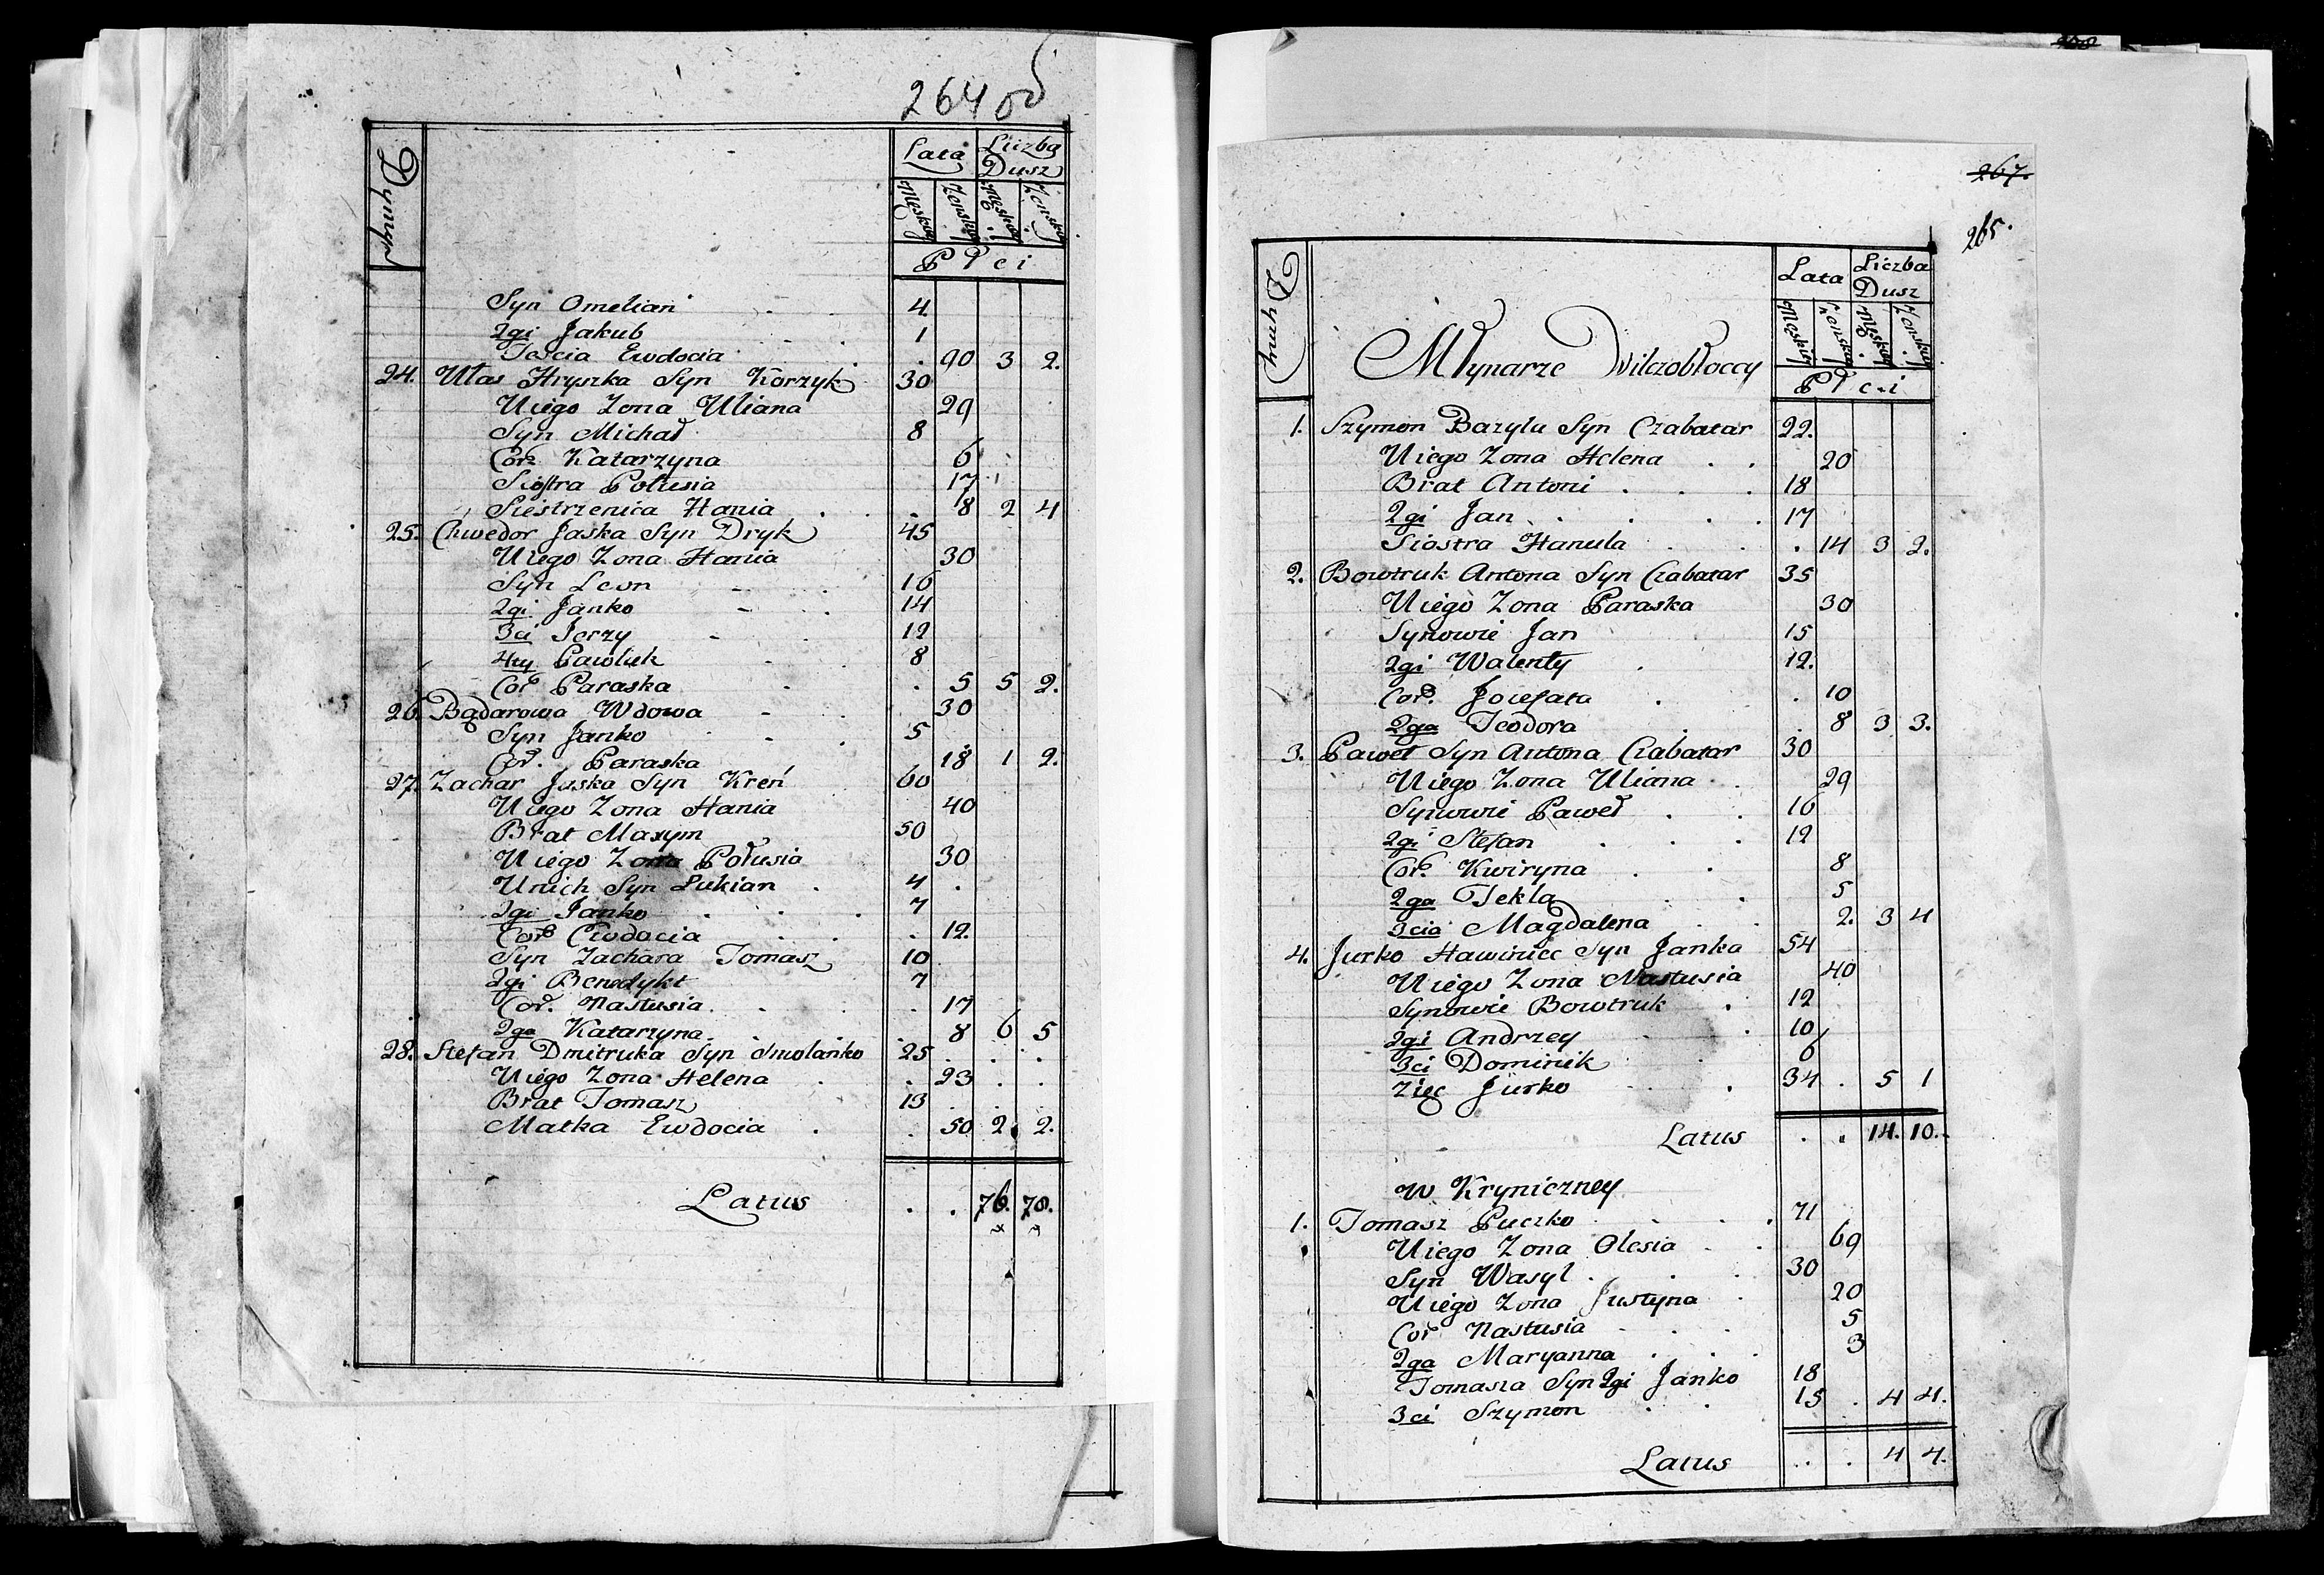 264 об
Dymy
Lata Liczba Dusz
Męskiey Zenskiey Męskiey Zenskiey
Płci
Syn Omelian 4
2gi Jakub 1
Teścia Ewdocia 90 3 2.
24. Ułas Hryszka Syn Korzyk 30
U iego Zona Uliana 29
Syn Michał 8
Cor. Katarzyna 6
Siostra Połusia 17
Siestrzenica Hania 18 2 4
25. Chwedor Jaska Syn Dryk 45
U iego Zona Hania 30
Syn Leon 16
2gi Janko 14
3ci Jerzy 12
4ty Pawluk 8
Cor Paraska 5 5 2.
26. Bądarowa Wdowa 30
Syn Janko 5
Cor. Paraska 18 1 2.
27. Zachar Jaska Syn Kreń 60
U iego Zona Hania 40
Brat Maxym 50
U iego Zona Połusia 30
U nich Syn Łukian 4
2gi Janko 7
Cor Ewdocia 12
Syn Zachara Tomasz 10
2gi Benedykt 7
Cor. Nastusia 17
2ga Katarzyna 8 6 5
28. Stefan Dmitruka Syn Smolanko 25
U iego Zona Helena 23
Brat Tomasz 13
Matka Ewdocia 50 2. 2.
Latus 76. 70.
267.
265.
Dymy
Lata Liczba Dusz
Męskiey Zenskiey Męskiey Zenskiey
Płci
Młynarze Wilczobłoccy
1. Szymon Bazylu Syn Czabatar 22.
U iego Zona Helena 20
Brat Antoni 18
2gi Jan 17
Siostra Hanula 14 3 2.
2. Bowtruk Antona Syn Czabatar 35
U iego Zona Paraska 30
Synowie Jan 15
2gi Walenty 12.
Cor. Jozefata 10
2ga Teodora 8 3 3.
3. Paweł Syn Antona Czabatar 30
U iego Zona Uliana 29
Synowie Paweł 16
2gi Stefan 12
Cor. Kwiryna 8
2ga Tekla 5
3cia Magdalena 2. 3 4
4. Jurko Hawiniec Syn Janka 54
U iego Zona Nastusia 40
Synowie Bowtruk 12
2gi Andrzey 10
3ci Dominik 6
Zięc Jurko 34 5 1
Latus 14. 10.
W Kryniczney
1. Tomasz Puczko 71
U iego Zona Olesia 69
Syn Wasyl 30
U iego Zona Justyna 20
Cor Nastusia 5
2ga Maryanna 3
Tomasza Syn 2gi Janko 18
3ci Szymon 15 4 4.
Latus 4 4.